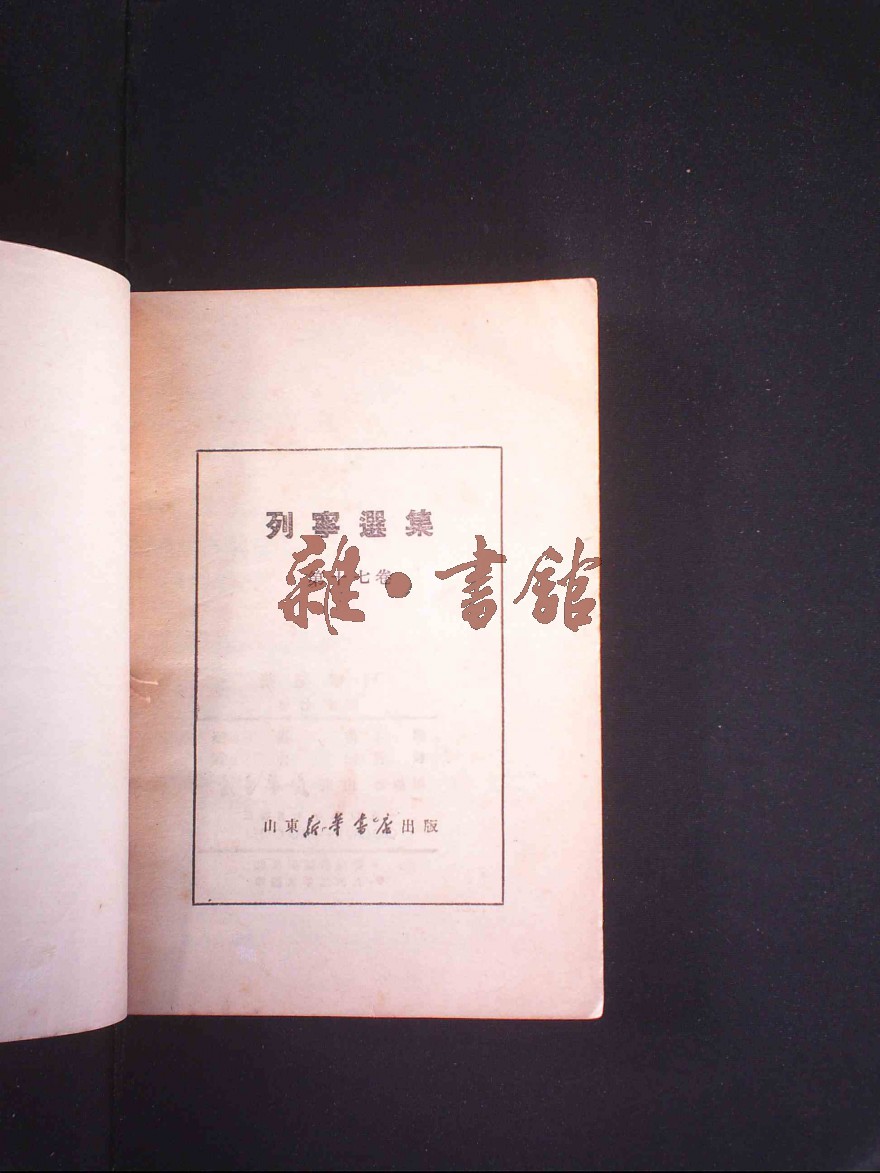 列寧選集
第十七卷
雜·書館
山東新华書店出版